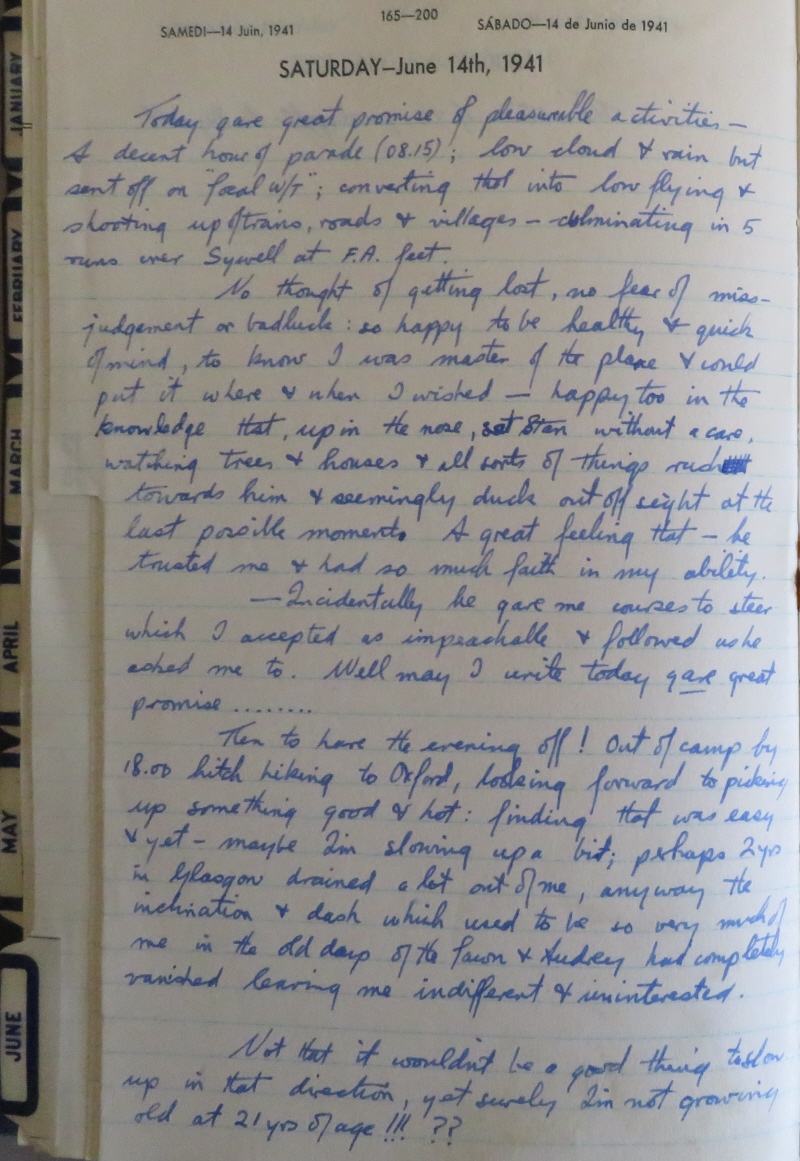 165—200
SAMEDI—14 Juin, 1941
SÁBADO—14 de Junio de 1941
SATURDAY—June 14th, 1941
Today gave great promise of pleasurable activities —
A decent hour of parade (08.15); low cloud & rain but
sent off on "local W/T"; converting that into low flying &
shooting up of trains, roads & villages — culminating in 5
runs over Sywell at F.A. feet.
No thought of getting lost, no fear of miss-
judgement or badluck: so happy to be healthy & quick
of mind, to know I was master of the plane & could
put it where & when I wished — happy too in the
knowledge that, up in the nose, sat Stan without a care,
watching trees & houses & all sorts of things rush
towards him & seemingly duck out off sight at the
last possible moment. A great feeling that — he
trusted me & had so much faith in my ability.
— Incidentally he gave me courses to steer
which I accepted as impeachable & followed as he
asked me to. Well may I write today gave great
promise ........
Then to have the evening off! Out of camp by
18.00 hitch hiking to Oxford, looking forward to picking
up something good & hot: finding that was easy
& yet — maybe I'm slowing up a bit; perhaps 2 yrs
in Glasgow drained a lot out of me, anyway the
inclination & dash which used to be so very much of
me in the old days of the Fawn & Audrey had completely
vanished leaving me indifferent & uninterested.
Not that it wouldn't be a good thing to slow
up in that direction, yet surely I'm not growing
old at 21 yrs of age !!! ??
JANUARY
FEBRUARY
MARCH
APRIL
MAY
JUNE